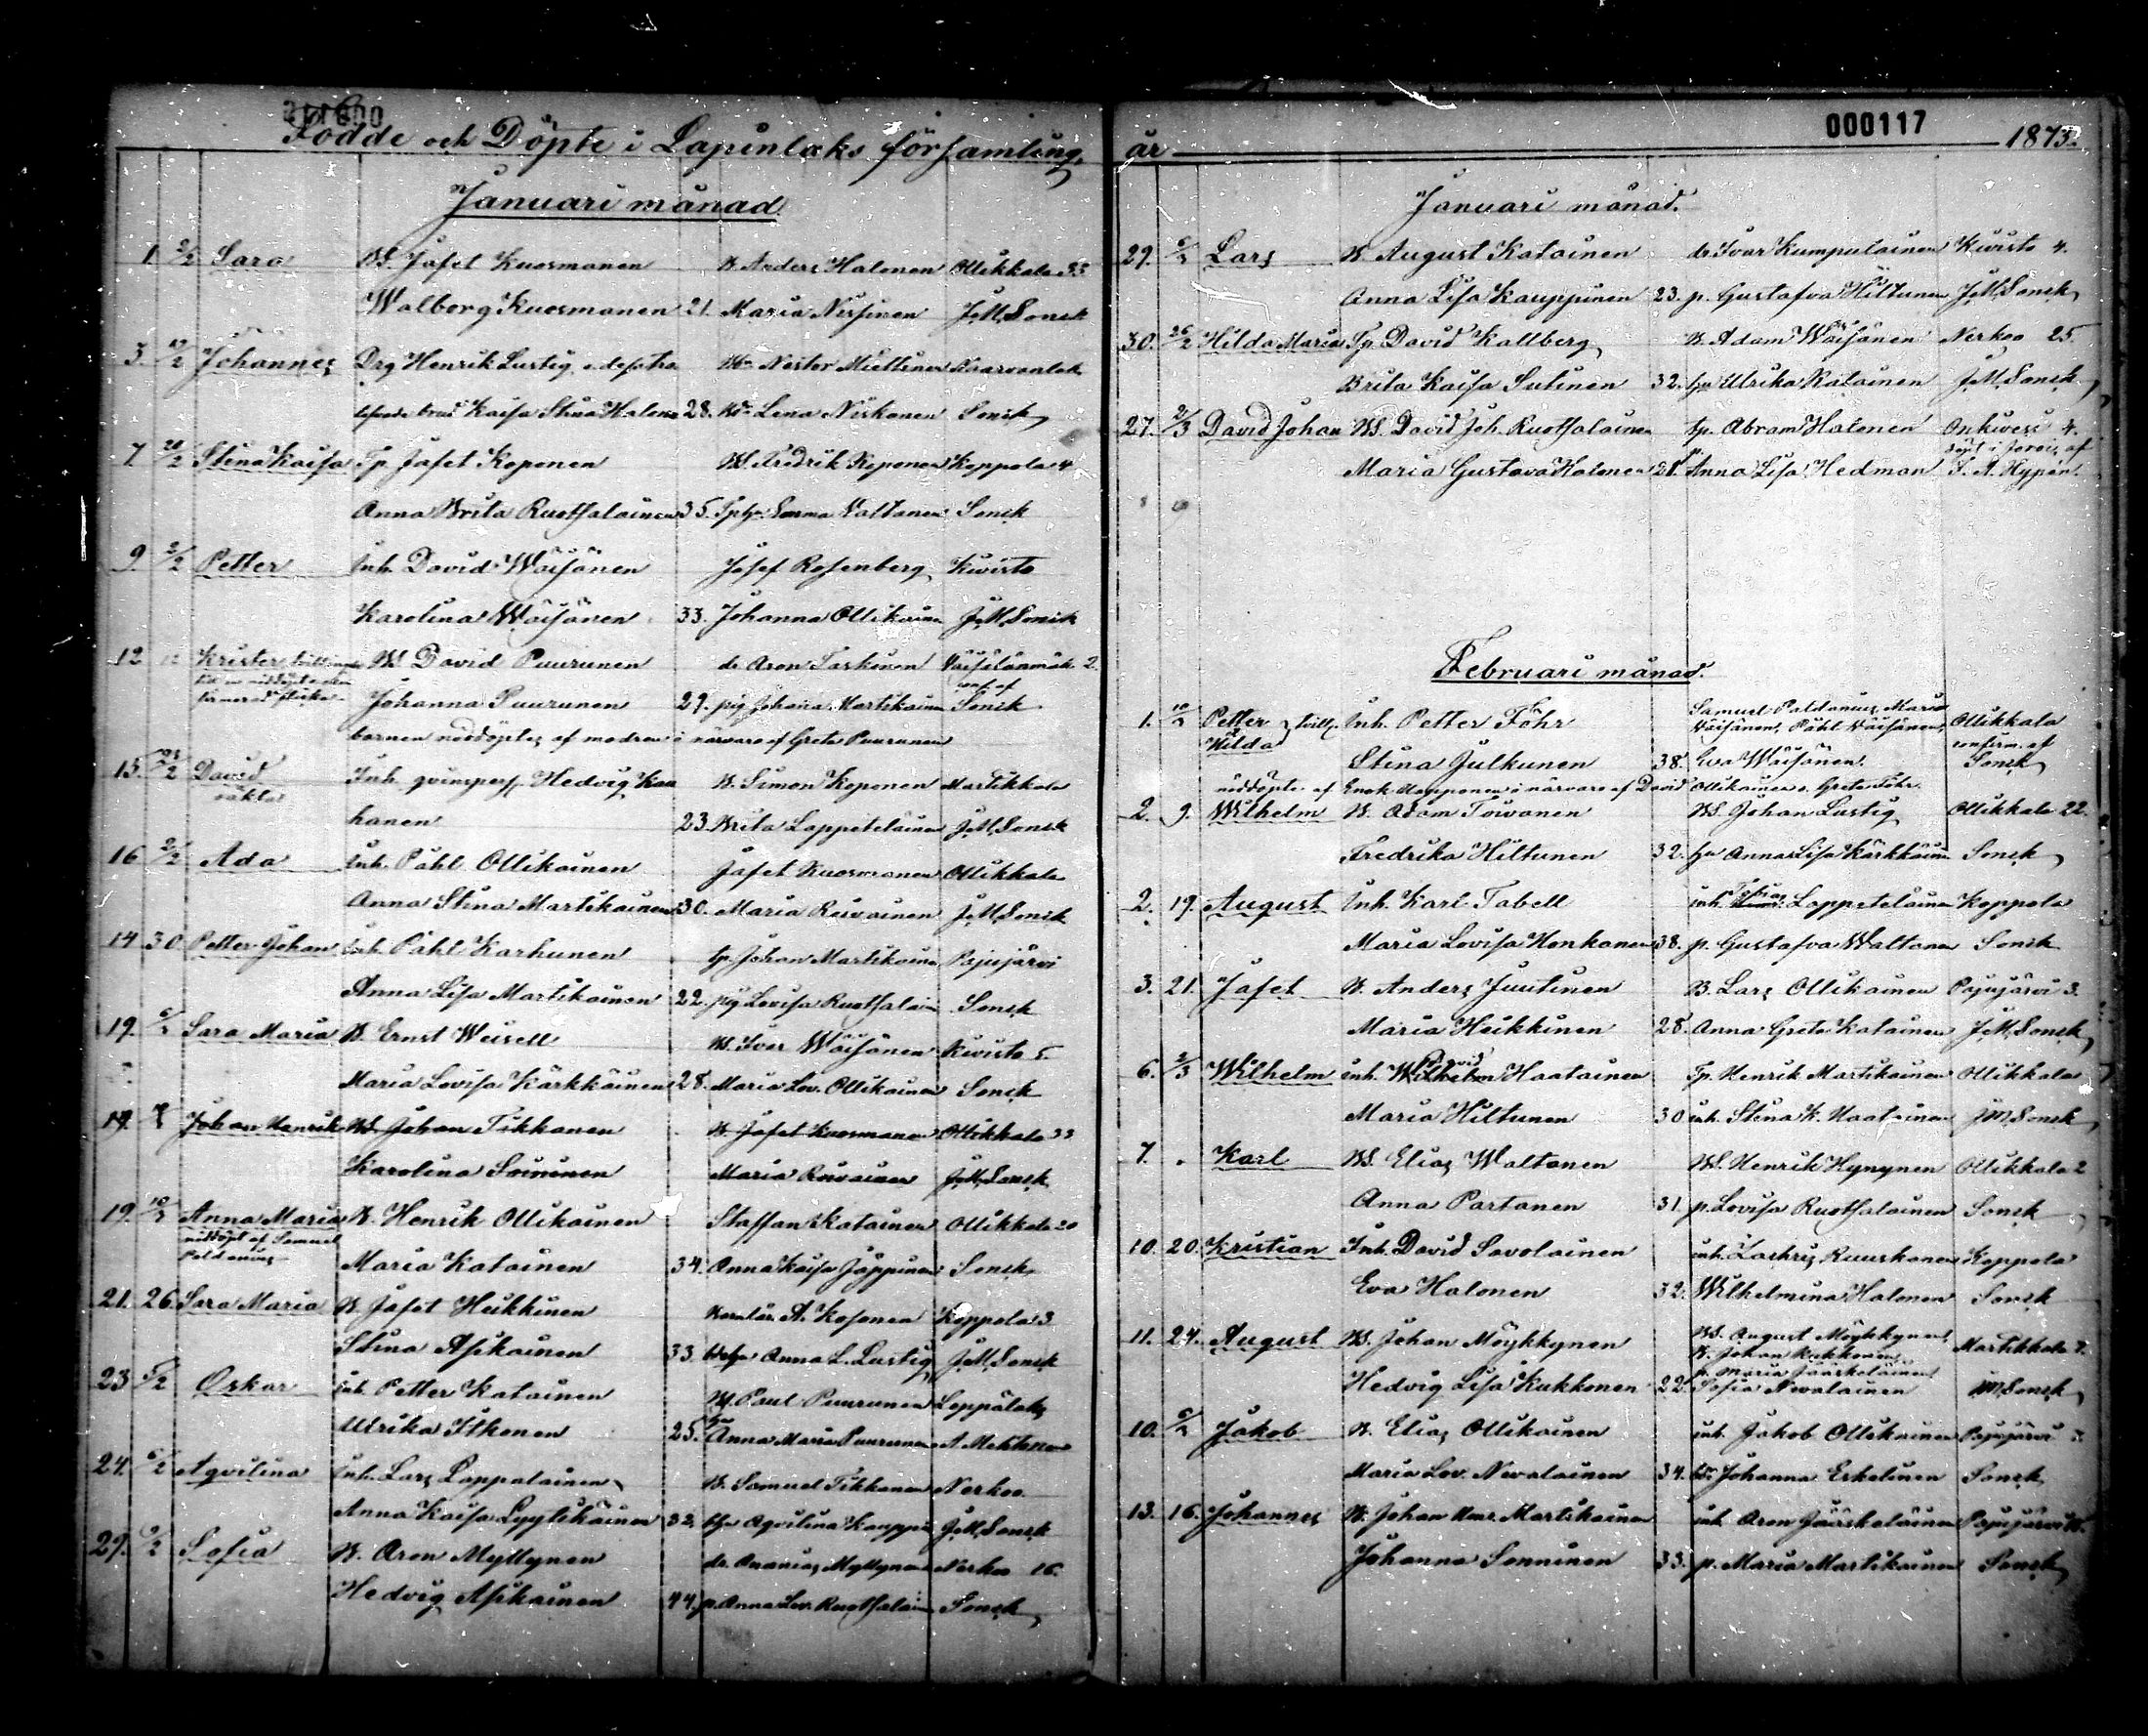 Födde och Döpte i Lapinlaks församling,
Januari månad.
1. 2/2 Sara B. Jafet Kuosmanen B. Anders Halonen Ollikkala 33
Walborg Kuosmanen 21. Maria Nissinen J.M. Sonck
3. Johannes Drg Henrik Lustig
Kaisa Stina Halonen 28. Lena Niskanen Sonck
7. Stina Kaisa Tp. Jafet Koponen Bs. Fredrik Koponen Koppola 4
Anna Brita Ruotsalainen 35. Emma Valtanen Sonck
9. 2/2 Petter Inh. David Wäisänen Josef Rosenberg Kivisto
Karolina Wäisänen 33. Johanna Ollikainen J.M. Sonck
12 Krister Bs. David Puurunen dr Aron Taskinen Väisälänmäki 2.
Johanna Puurunen 29. pig. Johanna Martikainen Sonck
barnen nöddöptes af modren i närvaro af Greta Puurunen
15. David Inh. qvinspers. Hedvig Kau
oäkta B. Simon Koponen Martikkala
hanen 23. Brita Lappeteläinen J.M. Sonck
16 2/2 Ada Inh. Påhl Ollikainen Jafet Kuosmanen Ollikkala
Anna Stina Martikainen 30. Maria Reivainen J.M. Sonck
14 30 Petter Johan Inh. Påhl Karhunen tp. Johan Martikainen Pajujärvi
Anna Lisa Martikainen 22. pig Lovisa Ruotsalain Sonck
19. 6/2 Sara Maria B. Ernst Weisell Bs. Ivar Wäisänen Kivisto 5.
Maria Lovisa Kärkkäinen 28. Maria Lov. Ollikainen Sonck
19. Johan Henrik Bs. Johan Tikkanen B. Jafet Kuosmanen Ollikkala 33
Karolina Soininen Maria Reivainen J.M. Sonck
19. Anna Maria B. Henrik Ollikainen Staffan Katainen Ollikkala 20
nöddöpt af Samuel
Paldanius Maria Katainen 34. Anna Kaisa Jäppinen Sonck
21. 26. Sara Maria B. Jafet Heikkinen A. Kosonen Koppola 3
Stina Asikainen 33 Anna L. Lustig J.M. Sonck
23 Oskar inh. Petter Katainen Bs. Paul Puurunen Leppälaks
Ulrika Itkonen 25. Anna Maria Puurunen
24. 6/2 Aqvilina Inh. Lars Lappalainen B. Samuel Tikkanen Nerkoo
Anna Kaisa Lyytikäinen 32. Aqvilina Kauppi J.M. Sonck
29. Sofia B. Aron Myllynen dr. Ananias Myllynen Nerkoo 16.
Hedvig Asikainen 44. p. Anna Lov. Ruotsalain Sonck
000117
år 1873.
Januari månad.
29. Lars B. August Katainen dr. Ivar Kumpulainen Kivisto 4.
Anna Lisa Kauppinen 23. p. Gustafva Hiltunen J.M. Sonck
30. 26/2 Hilda Maria Tp. David Kallberg B. Adam Wäisänen Nerkoo 25.
Brita Kaisa Sutinen 32. Ulrika Katainen J.M. Sonck
27. 21/3 David Johan Bs. David Joh. Ruotsalainen tp. Abram Halonen Onkivesi 4.
döpt i Jorois af
Maria Gustava Halonen 21. Anna Lisa Hedman
Februari månad.
1. Petter Inh. Petter Föhr Samuel Paldanius, Maria
Hilda tvill. Wäisänen, Påhl Wäisänen, Ollikkala
Stina Julkunen 38. Eva Wäisänen. confirm. af Sonck
nöddöpte af Enok i närvaro af David Ollikainen o. Greta Föhr.
2. 9. Wilhelm B. Adam Toivanen Bs. Johan Lustig Ollikkala 22.
Fredrika Hiltunen 32. Anna Lisa Kärkkäinen Sonck
2. 19. August Inh. Karl Tabell inh. Tobias Lappeteläinen Koppola
Maria Lovisa Honkanen 38. p. Gustafva Waltanen Sonck
3. 21. Jafet B. Anders Juutinen B. Lars Ollikainen Pajujärvi 3.
Maria Heikkinen 28. Anna Greta Katainen J.M. Sonck
6. 2/3 Wilhelm inh. David Haatainen Tp. Henrik Martikainen Ollikkala
Maria Hiltunen 30 inh. Stina K. Haatainen J.M. Sonck
7. Karl Bs. Elias Waltanen Bs. Henrik Hynynen Ollikkala 2
Anna Partanen 31. p. Lovisa Ruotsalainen Sonck
10. 20. Kristian Inh. David Savolainen inh. Zachris Ruuskanen Koppola
Eva Halonen 32. Wilhelmina Halonen Sonck
11. 24. August Bs. Johan Möykkynen Bs. August Möykkynen Martikkala 7.
B. Johan Kukkonen
p. Maria Jääskeläinen
Hedvig Lisa Kukkonen 22. Sofia Nevalainen J.M. Sonck
10. Jakob B. Elias Ollikainen inh. Jakob Ollikainen Pajujärvi
Maria Lov. Nevalainen 34. Johanna Eskelinen Sonck
13. 16. Johannes B. Johan Martikainen inh. Aron Jääskeläinen Pajujärvi
Johanna Sonninen 33. p. Maria Martikainen Sonck